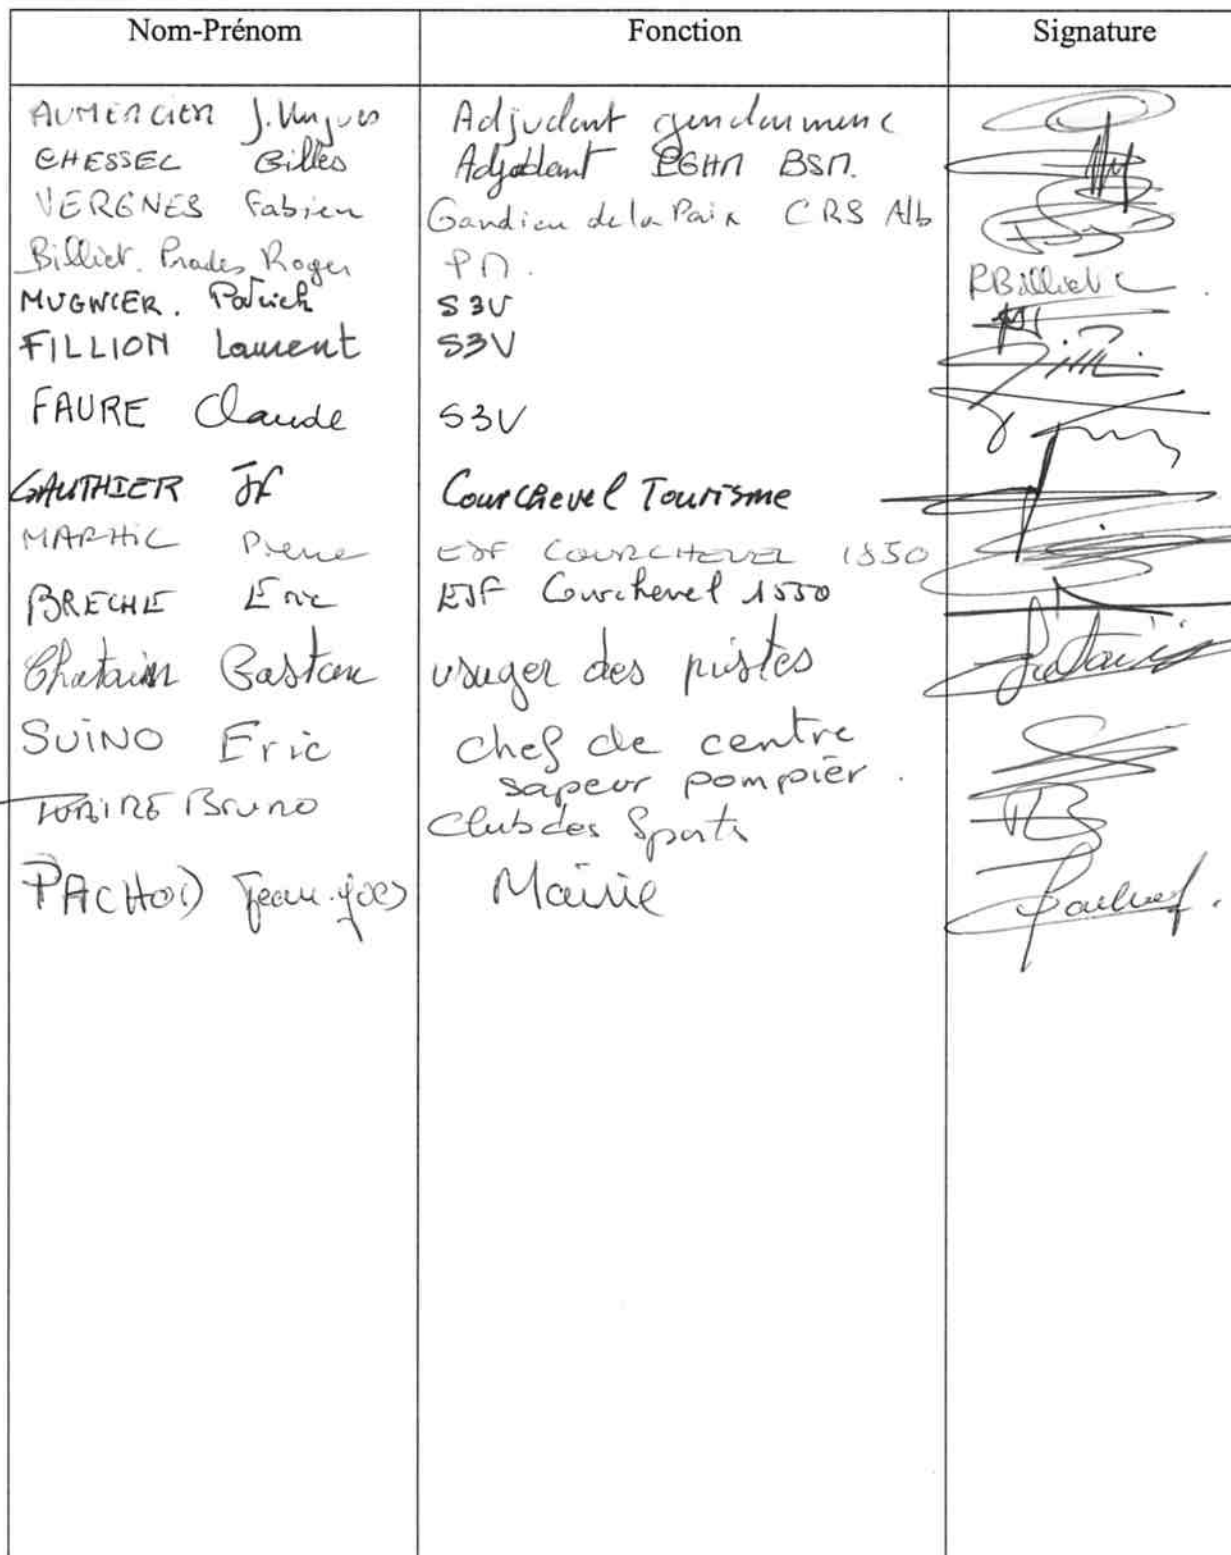 Nom-Prénom Fonction Signature
AUMERCIER J. Hugues Adjudant gendarmerie
CHESSEL Gilles Adjudant PGHM BSM.
VERGNES Fabien Gardien de la Paix CRS Alb
Billiet. Prades Roger PM. RBilliet
MUGNIER. Patrick S3V
FILLION Laurent S3V
FAURE Claude S3V
GAUTHIER JF Courchevel Tourisme
MARHIC Pierre ESF COURCHEVEL 1550
BRECHE Eric ESF Courchevel 1550
Chatain Gaston usager des pistes
SUINO Eric chef de centre
sapeur pompier.
Bruno Club des Sports
PACHOD Jean-Yves Mairie